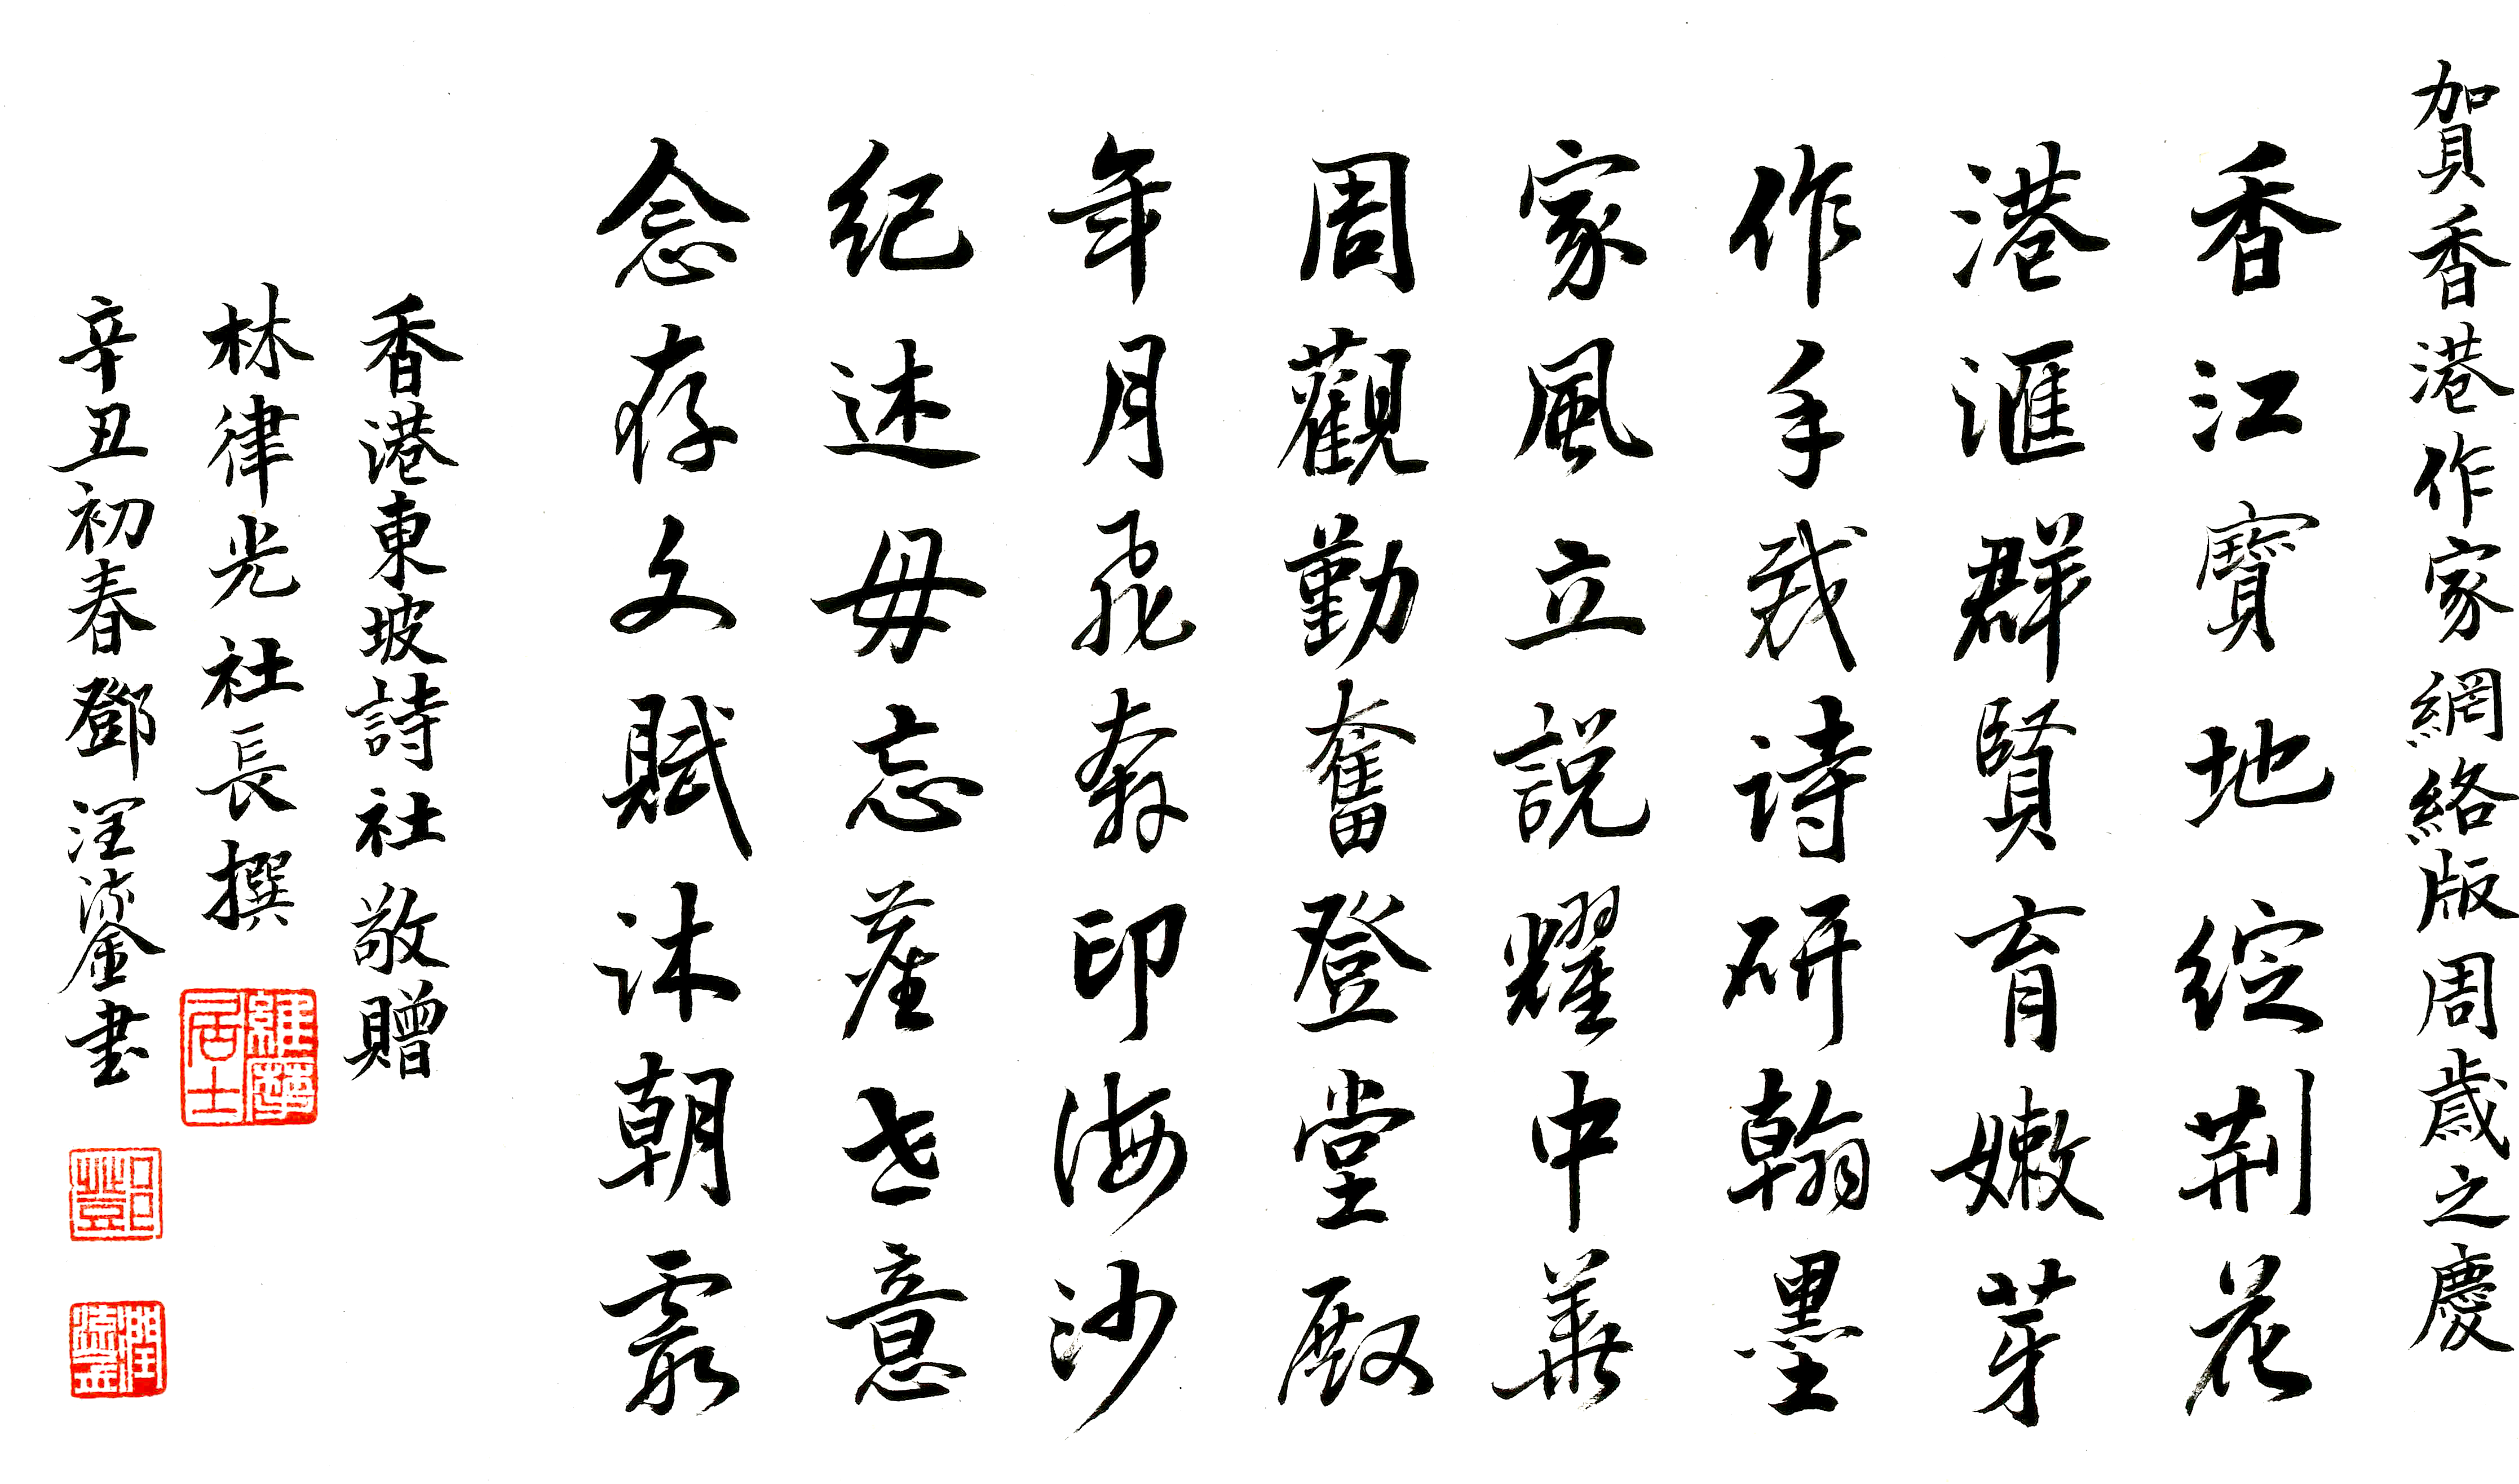 賀香港作家網絡版周歲之慶
香江寶地綻荆花
港滙群賢育嫩芽
作手裁诗研翰墨
家風立説耀中華
周觀勤奮登堂殿
年月飛奔印海沙
纪述毋忘老意
念存文賦沐朝霞
香港東坡詩社敬贈
林律光社長撰
維摩居士
辛丑初春鄧鎏書
鄧